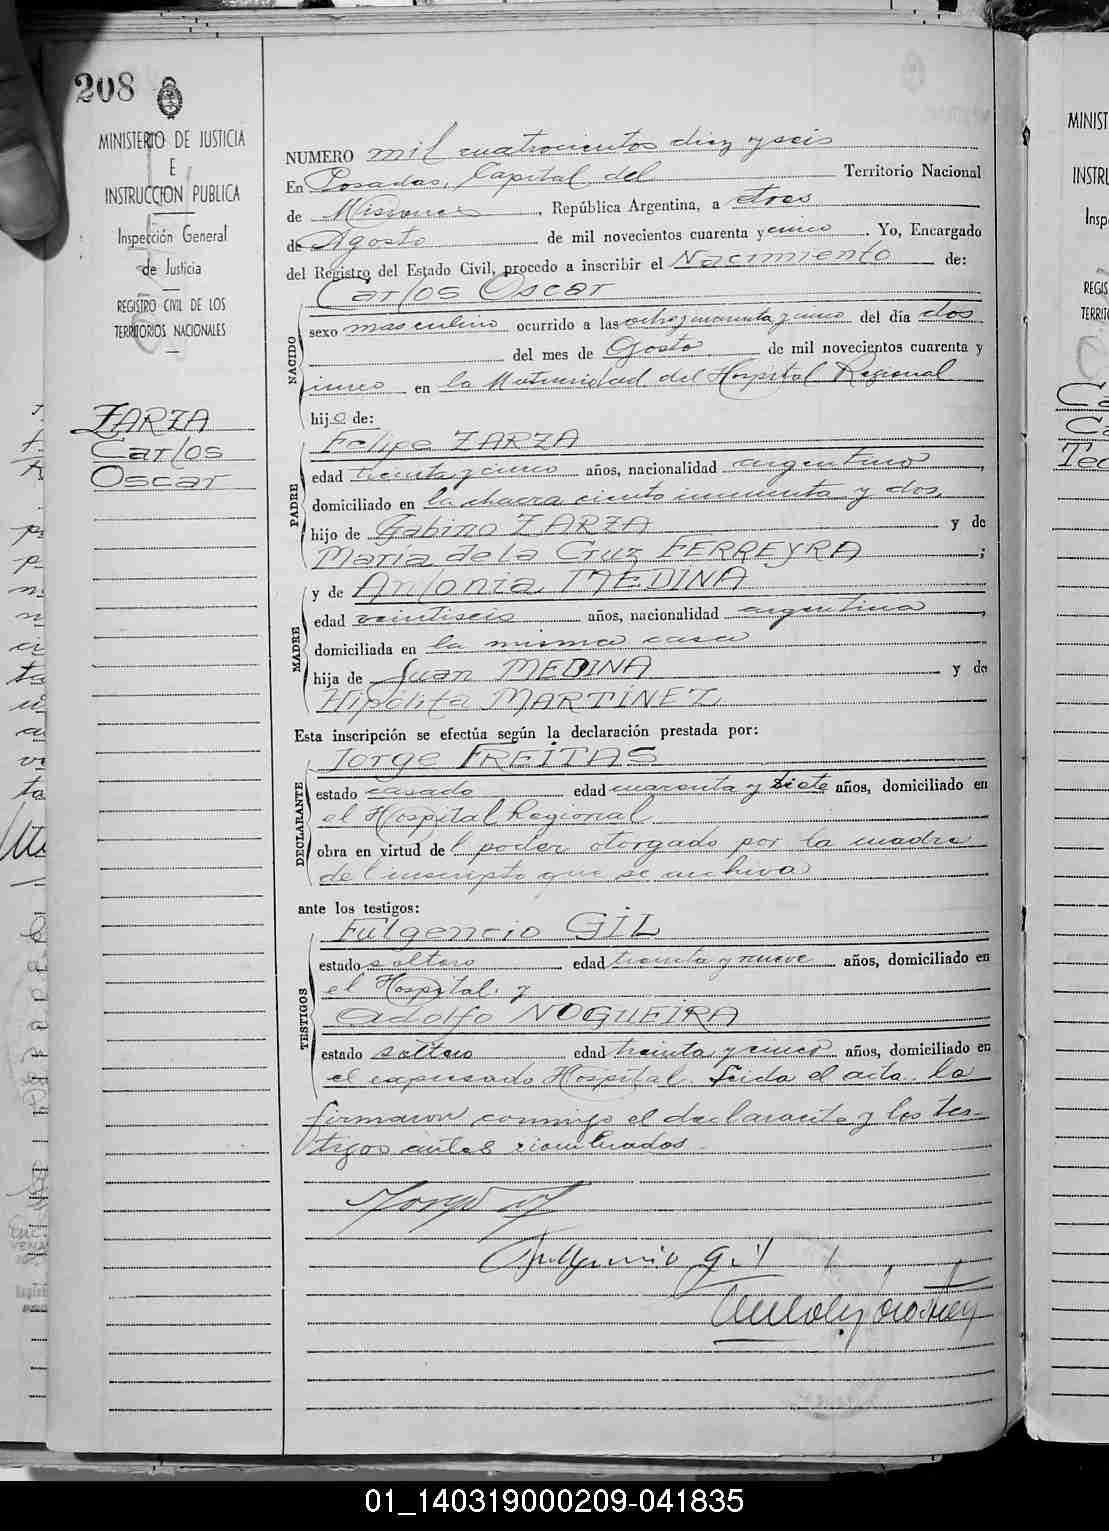 208
MINISTERIO DE JUSTICIA
E
INSTRUCCION PUBLICA
Inspección General
de Justicia
REGISTRO CIVIL DE LOS
TERRITORIOS NACIONALES
ZARZA
Carlos
Oscar
NUMERO mil cuatrocientos diez y seis
En Posadas, Capital del Territorio Nacional
de Misiones, República Argentina, a tres
de Agosto de mil novecientos cuarenta y cinco. Yo, Encargado
del Registro del Estado Civil, procedo a inscribir el Nacimiento de:
Carlos Oscar
NACIDO
sexo masculino ocurrido a las ocho y cuarenta y cinco del día dos
del mes de Gosto de mil novecientos cuarenta y
cinco en la Maternidad del Hospital Regional
hijo de:
PADRE
Felipe ZARZA
edad treinta y cinco años, nacionalidad argentino,
domiciliado en la chacra ciento cincuenta y dos,
hijo de Gabino ZARZA y de
Maria de la Cruz FERREYRA;
MADRE
y de Antonia MEDINA
edad veintiseis años, nacionalidad argentina,
domiciliada en la misma casa
hija de Juan MEDINA y de
Hipólita MARTINEZ
Esta inscripción se efectúa según la declaración prestada por:
DECLARANTE
Jorge FREITAS
estado casado edad cuarenta y siete años, domiciliado en
el Hospital Regional
obra en virtud del poder otorgado por la madre
del inscripto que se archiva
ante los testigos:
TESTIGOS
Fulgencio GIL
estado soltero edad treinta y nueve años, domiciliado en
el Hospital. y
Adolfo NOGUEIRA
estado soltero edad treinta y cinco años, domiciliado en
el expresado Hospital. Leida el acta. la
firmaron conmigo el declarante y los tes-
tigos antes nombrados.
Fulgencio Gil
MINIST
INSTRU
Insp
REGIS
TERRITO
01_140319000209-041835